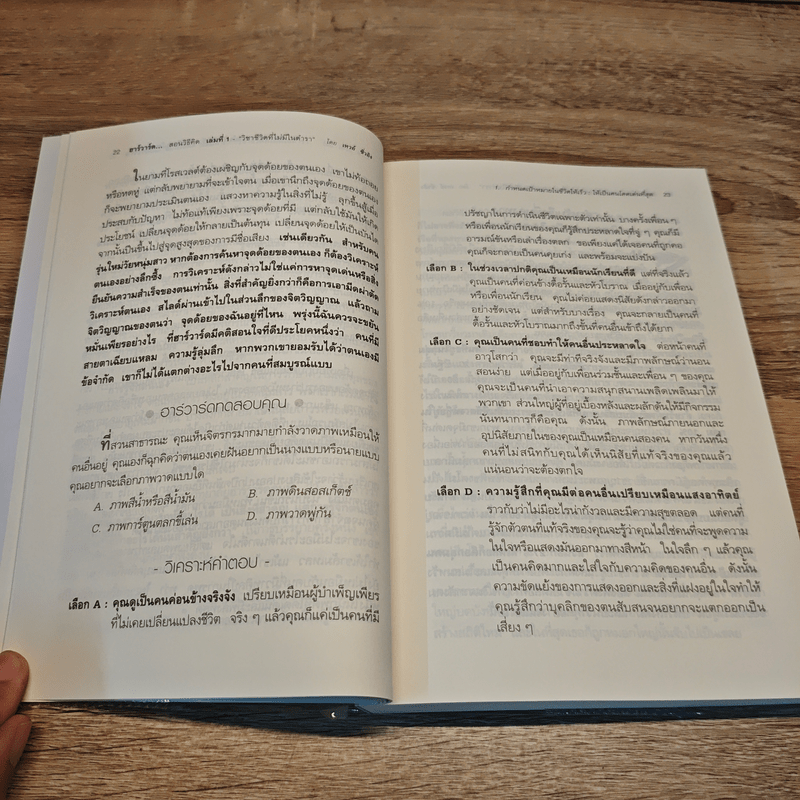 22 ฮาร์วาร์ด... สอนวิธีคิด เล่มที่ 1 - "วิชาชีวิตที่ไม่มีในตำรา" โดย
ในยามที่โรสเวลต์ต้องเผชิญกับจุดด้อยของตนเอง เขาไม่ท้อถอย
หรือหดหู่ แต่กลับพยายามที่จะเข้าใจตน เมื่อเขานึกถึงจุดด้อยของตนเอง
ก็จะพยายามประเมินตนเอง แสวงหาความรู้ในสิ่งที่ไม่รู้ ลุกขึ้นสู้เมื่อ
ประสบกับปัญหา ไม่ท้อแท้เพียงเพราะจุดด้อยที่มี แต่กลับใช้มันให้เกิด
ประโยชน์ เปลี่ยนจุดด้อยให้กลายเป็นต้นทุน เปลี่ยนจุดด้อยให้เป็นบันได
จากนั้นปีนขึ้นไปสู่จุดสูงสุดของการมีชื่อเสียง เช่นเดียวกัน สำหรับคน
รุ่นใหม่วัยหนุ่มสาว หากต้องการค้นหาจุดด้อยของตนเอง ก็ต้องวิเคราะห์
ตนเองอย่างลึกซึ้ง การวิเคราะห์ดังกล่าวไม่ใช่แค่การหาจุดเด่นหรือสิ่ง
ยืนยันความสำเร็จของตนเท่านั้น สิ่งสำคัญยิ่งกว่าก็คือการเอามีดผ่าตัด
วิเคราะห์ตนเอง สไลด์ผ่านเข้าไปในส่วนลึกของจิตวิญญาณ แล้วถาม
จิตวิญญาณของตนว่า จุดด้อยของฉันอยู่ที่ไหน พรุ่งนี้ฉันควรจะขยัน
หมั่นเพียรอย่างไร ที่ฮาร์วาร์ดมีคติสอนใจที่ดีประโยคหนึ่งว่า คนที่มี
สายตาเฉียบแหลม ความรู้ลุ่มลึก หากพวกเขายอมรับได้ว่าตนเองมี
ข้อจำกัด เขาก็ไม่ได้แตกต่างอะไรไปจากคนที่สมบูรณ์แบบ
ฮาร์วาร์ดทดสอบคุณ
ที่สวนสาธารณะ คุณเห็นจิตรกรมากมายกำลังวาดภาพเหมือนให้
คนอื่นอยู่ คุณเองก็ฉุกคิดว่าตนเองเคยฝันอยากเป็นนางแบบหรือนายแบบ
คุณอยากจะเลือกภาพวาดแบบใด
A. ภาพสีน้ำหรือสีน้ำมัน B. ภาพดินสอสเก็ตซ์
C. ภาพการ์ตูนตลกขี้เล่น D. ภาพวาดพู่กัน
- วิเคราะห์คำตอบ -
เลือก A : คุณดูเป็นคนค่อนข้างจริงจัง เปรียบเหมือนผู้บำเพ็ญเพียร
ที่ไม่เคยเปลี่ยนแปลงชีวิต จริง ๆ แล้วคุณก็แค่เป็นคนที่มี
1. กำหนดเป้าหมายในชีวิตให้เร็ว : ได้เป็นคนโดดเด่นที่สุด 23
ปรัชญาในการดำเนินชีวิตเฉพาะตัวเท่านั้น บางครั้งเพื่อน ๆ
หรือเพื่อนนักเรียนของคุณก็รู้สึกประหลาดใจที่จู่ ๆ คุณก็มี
อารมณ์ขันหรือเล่าเรื่องตลก ขอเพียงแค่ได้เจอคนที่ถูกคอ
คุณก็จะกลายเป็นคนคุยเก่ง และพร้อมจะแบ่งปัน
เลือก B : ในช่วงเวลาปกติคุณเป็นเหมือนนักเรียนที่ดี แต่ที่จริงแล้ว
คุณเป็นคนที่ค่อนข้างดื้อรั้นและหัวโบราณ เมื่ออยู่กับเพื่อน
หรือเพื่อนนักเรียน คุณไม่ค่อยแสดงนิสัยดังกล่าวออกมา
อย่างชัดเจน แต่สำหรับบางเรื่อง คุณจะกลายเป็นคนที่
ดื้อรั้นและหัวโบราณมากถึงขั้นที่คนอื่นเข้าถึงได้ยาก
เลือก C : คุณเป็นคนที่ชอบทำให้คนอื่นประหลาดใจ ต่อหน้าคนที่
อาวุโสกว่า คุณจะมีท่าทีจริงจังและมีภาพลักษณ์ว่านอน
สอนง่าย แต่เมื่ออยู่กับเพื่อนร่วมชั้นและเพื่อน ๆ ของคุณ
คุณจะเป็นคนที่นำเอาความสนุกสนานเพลิดเพลินมาให้
พวกเขา ส่วนใหญ่ผู้ที่อยู่เบื้องหลังและผลักดันให้มีกิจกรรม
นันทนาการก็คือคุณ ดังนั้น ภาพลักษณ์ภายนอกและ
อุปนิสัยภายในของคุณเป็นเหมือนคนสองคน หากวันหนึ่ง
คนที่ไม่สนิทกับคุณได้เห็นนิสัยที่แท้จริงของคุณแล้ว
แน่นอนว่าจะต้องตกใจ
เลือก D : ความรู้สึกที่คุณมีต่อคนอื่นเปรียบเหมือนแสงอาทิตย์
ราวกับว่าไม่มีอะไรน่ากังวลและมีความสุขตลอด แต่คนที่
รู้จักตัวตนที่แท้จริงของคุณจะรู้ว่าคุณไม่ใช่คนที่จะพูดความ
ในใจหรือแสดงมันออกมาทางสีหน้า ในใจลึก ๆ แล้วคุณ
เป็นคนคิดมากและใส่ใจกับความคิดของคนอื่น ดังนั้น
ความขัดแย้งของการแสดงออกและสิ่งที่แฝงอยู่ในใจทำให้
คุณรู้สึกว่าบุคลิกของตนสับสนจนอยากจะแตกออกเป็น
เสี่ยง ๆ